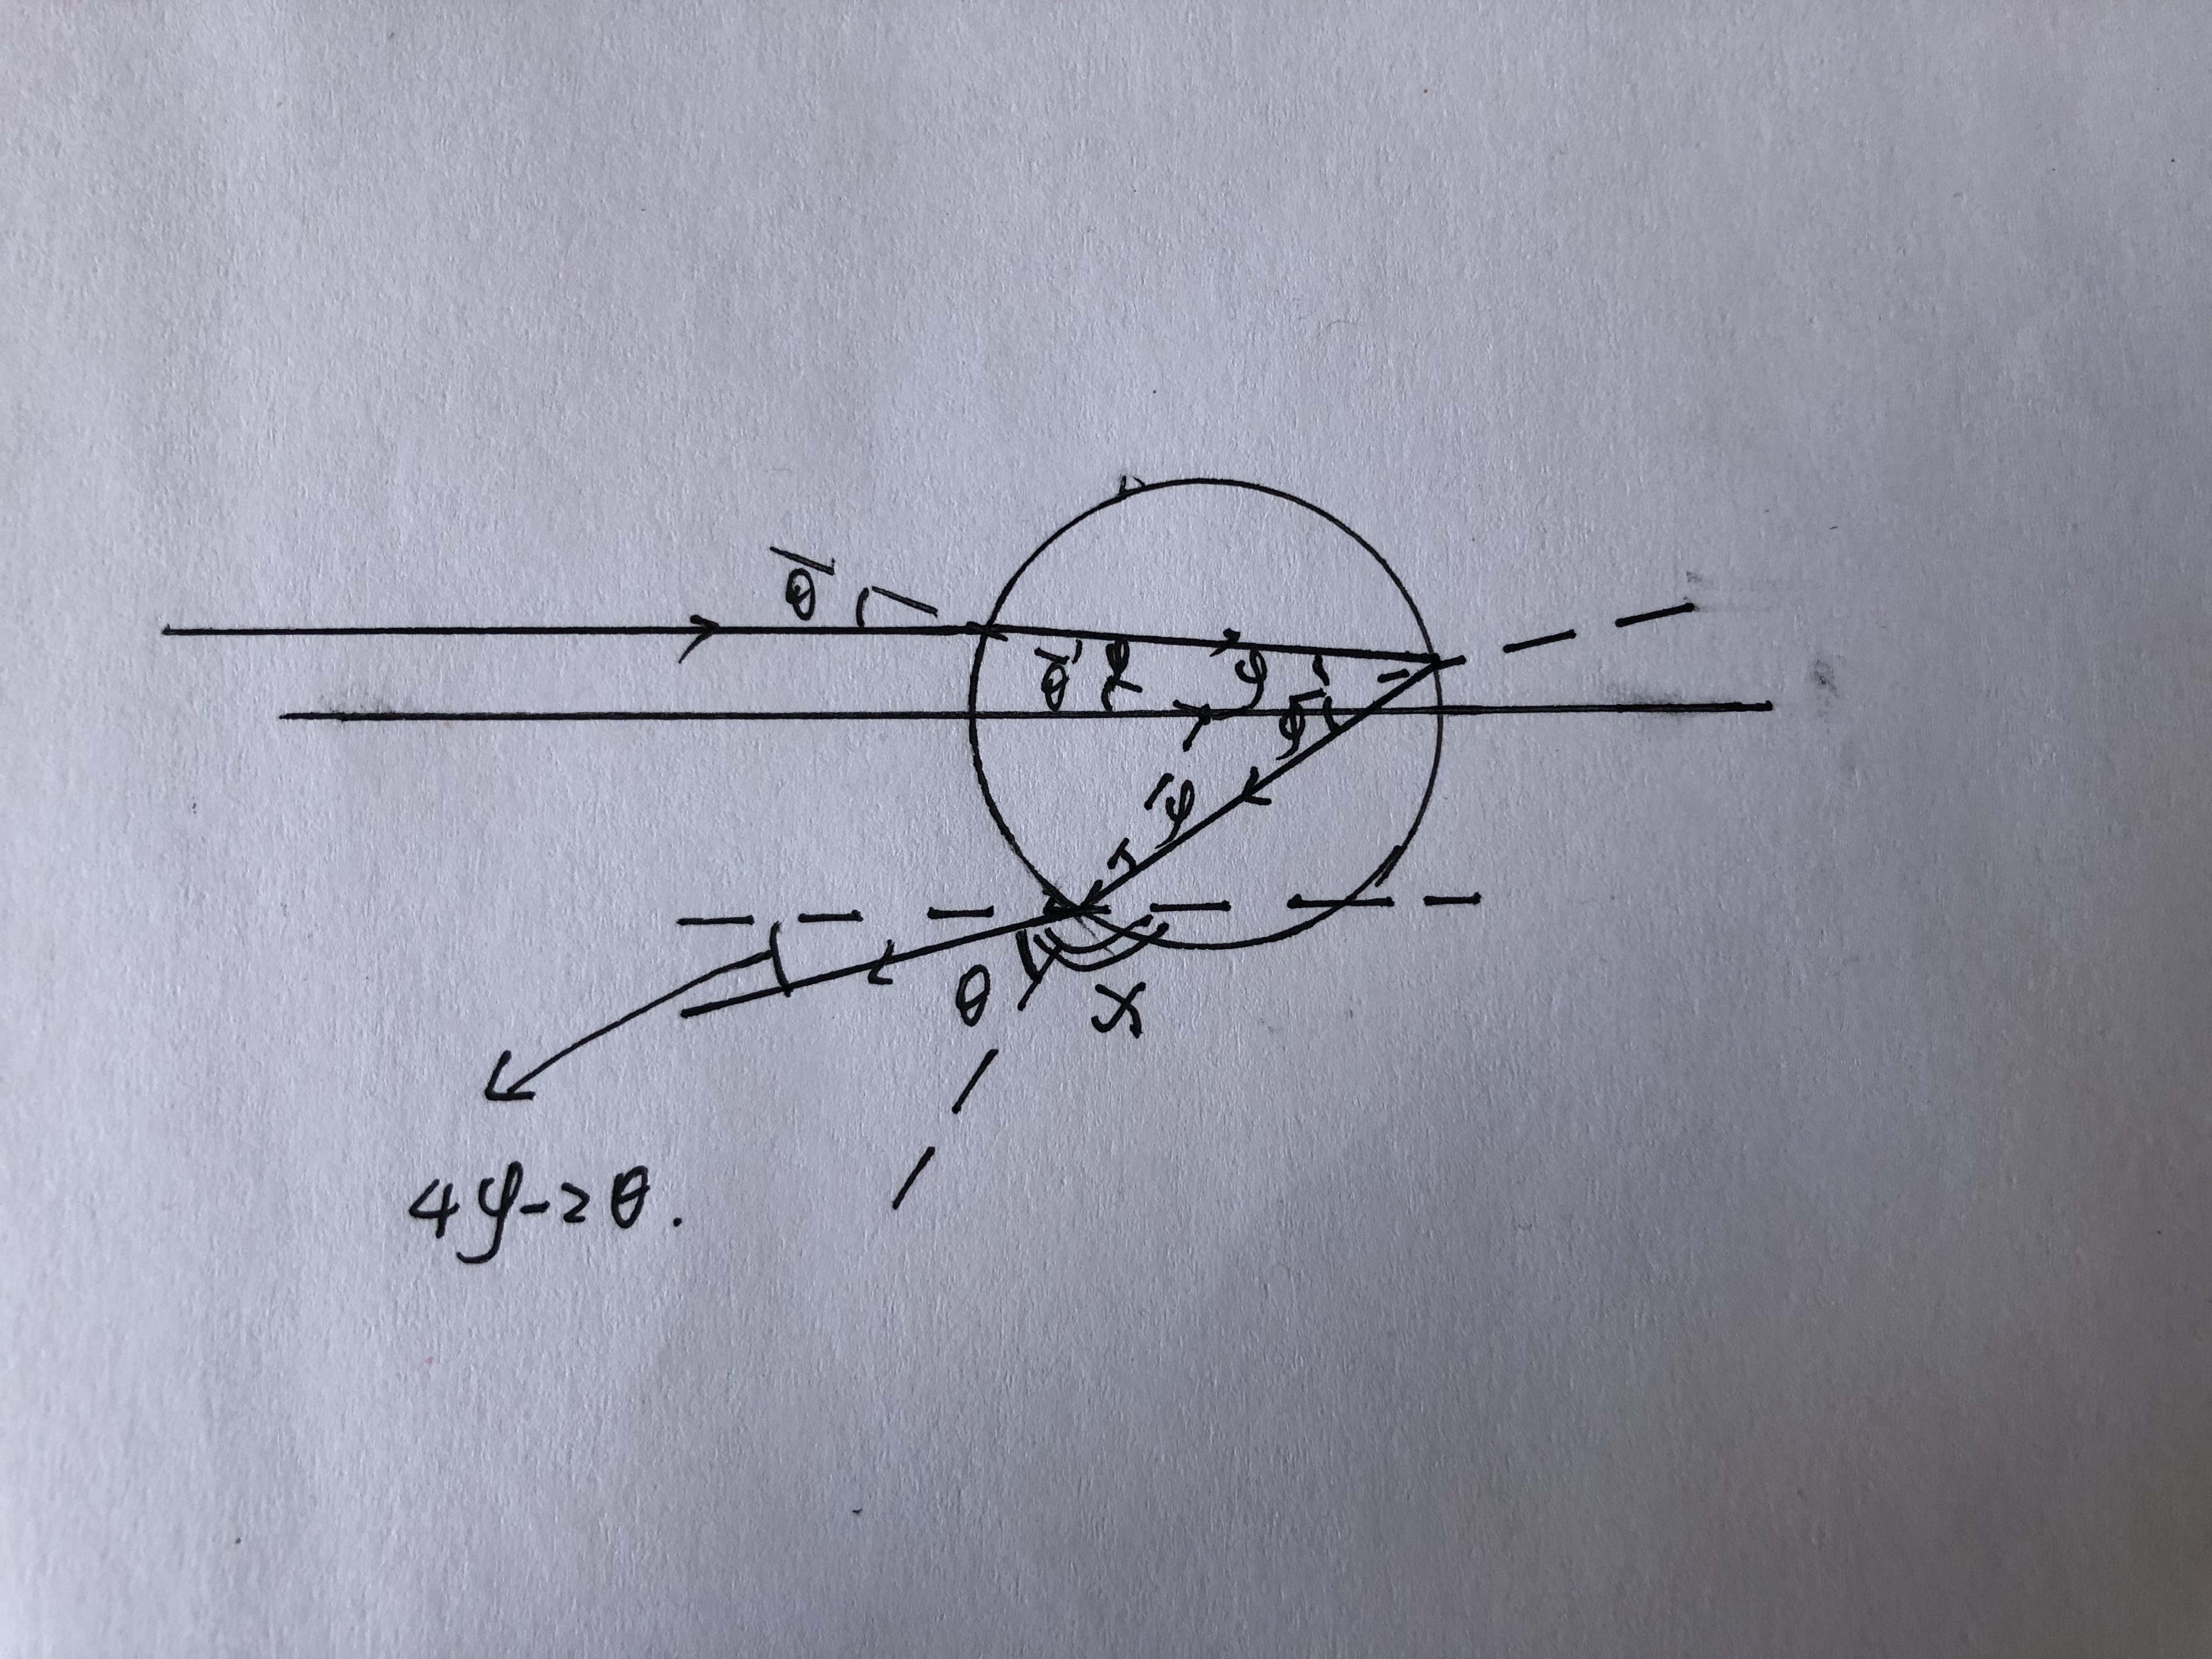 θ
θ φ φ
φ
φ
θ x
4φ-2θ.